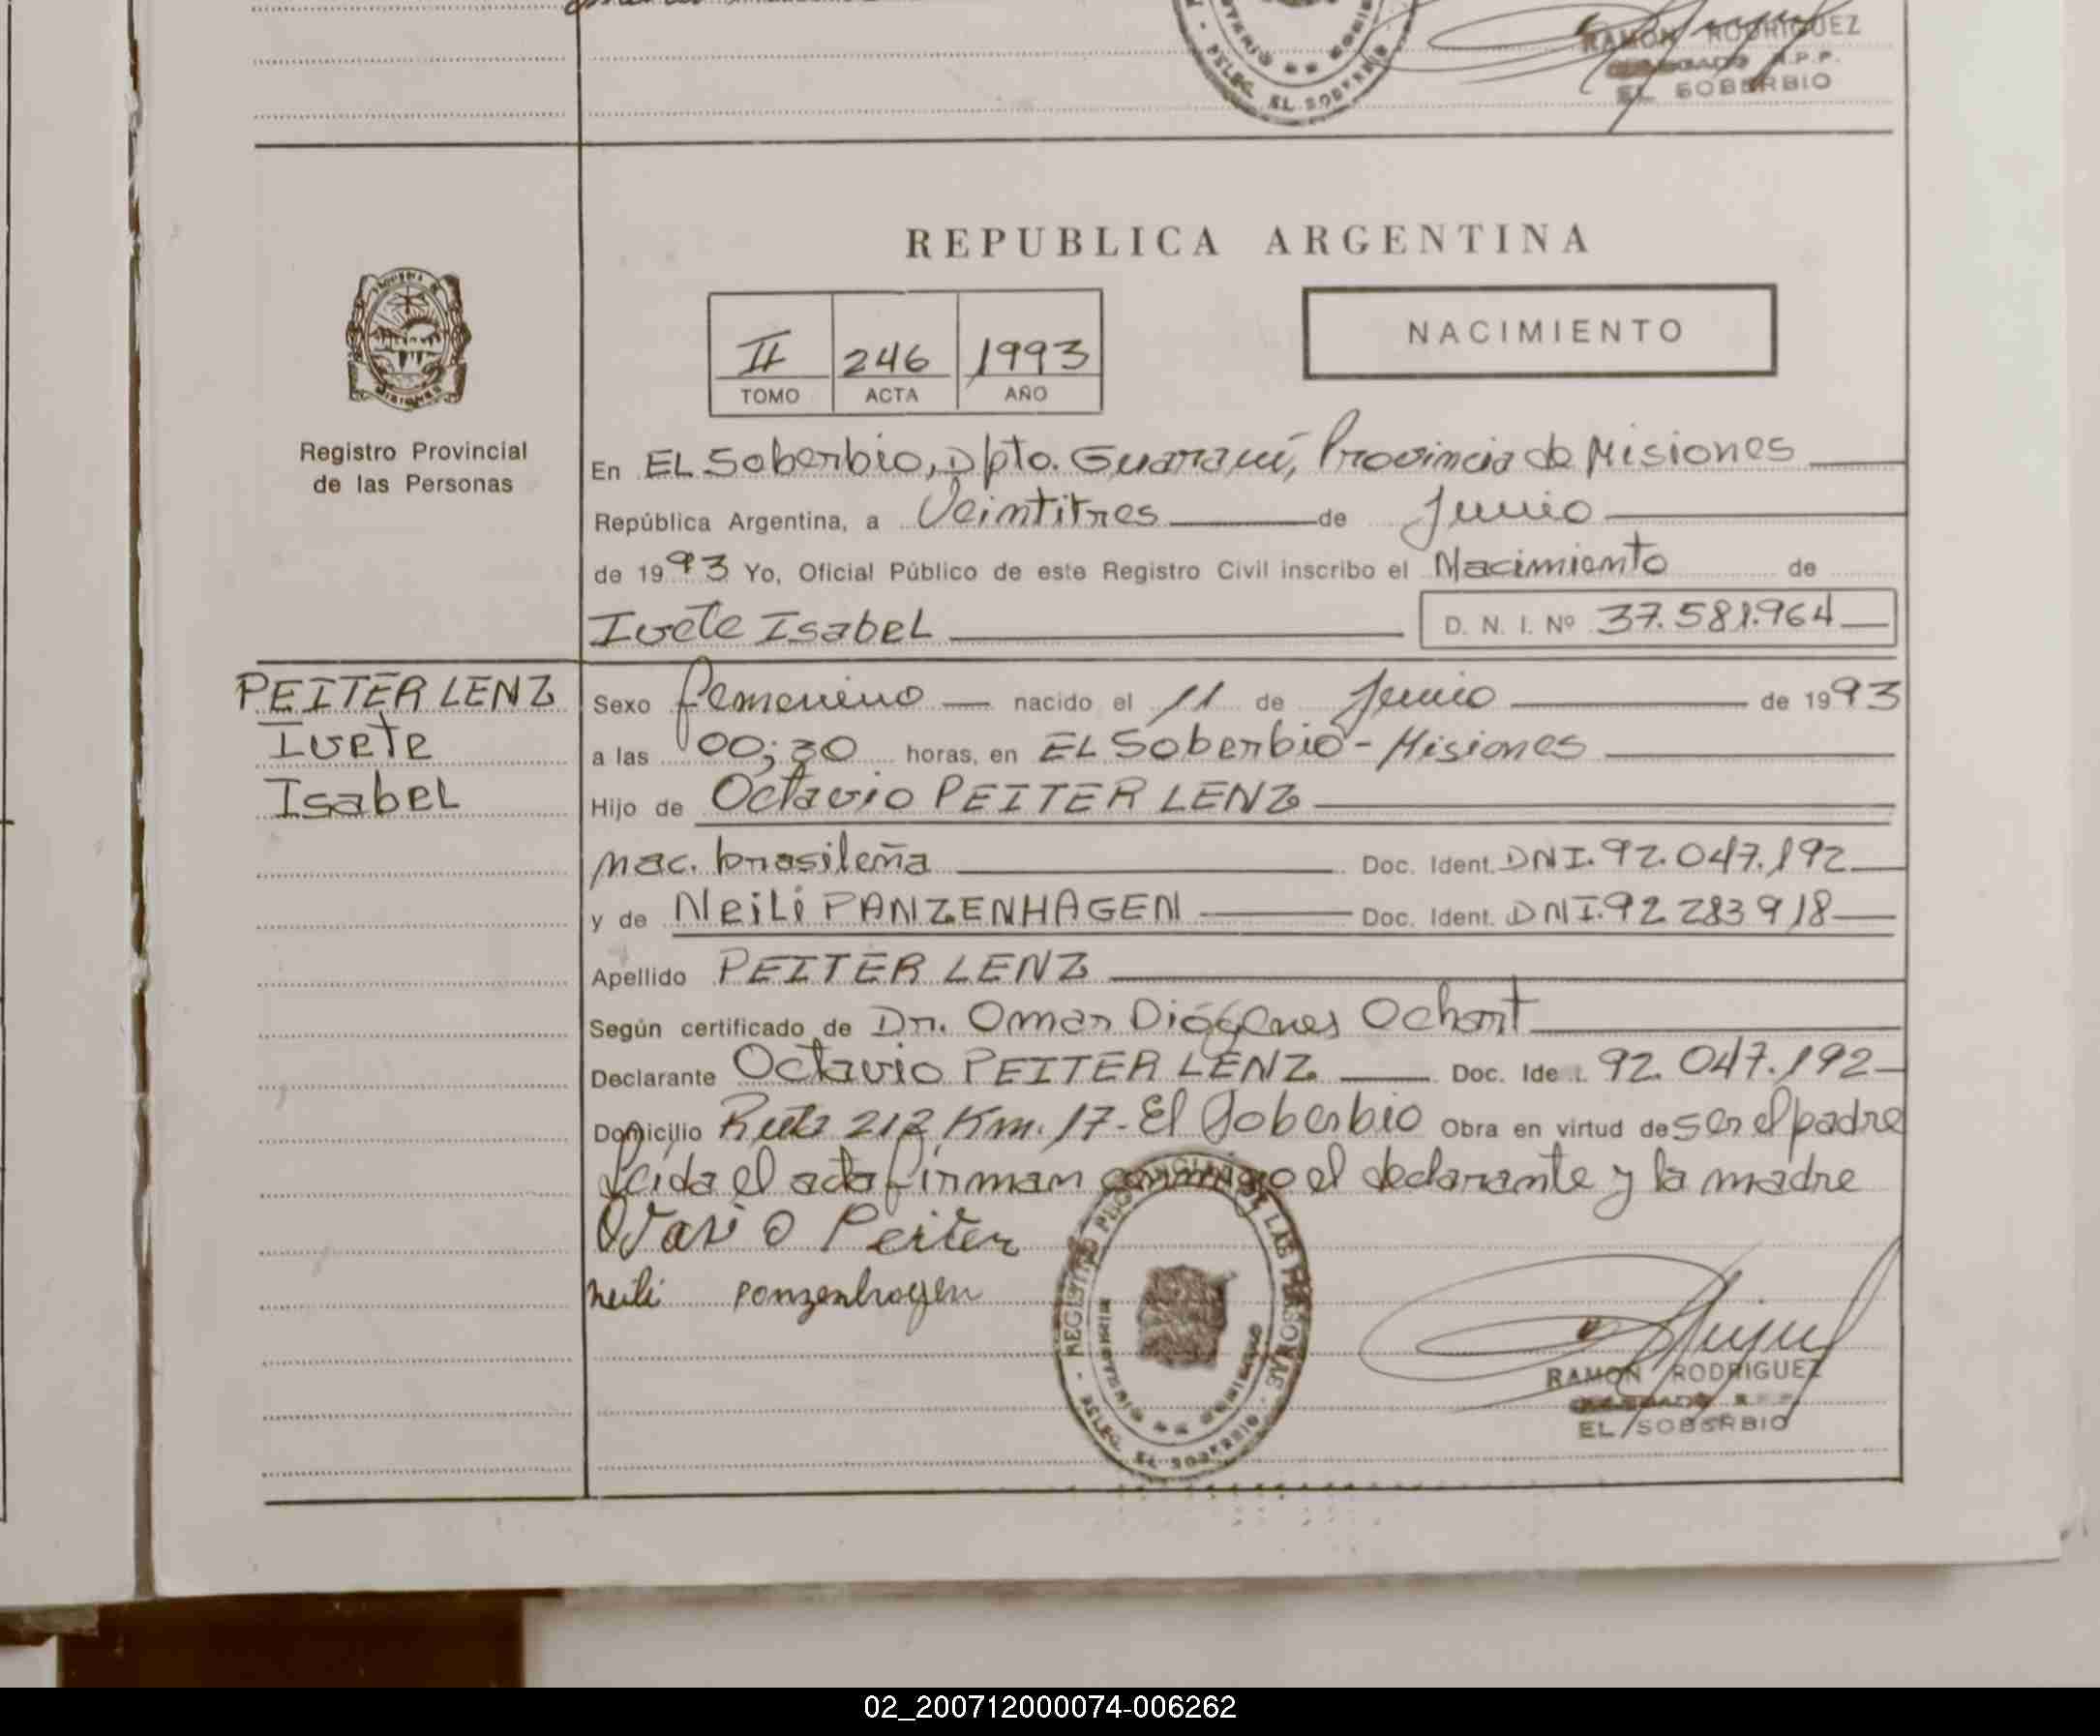 RAMON RODRIGUEZ
R.P.P.
EL SOBERBIO
DELEG. EL SOBERBIO
REPUBLICA ARGENTINA
II 246 1993
TOMO ACTA AÑO
NACIMIENTO
MISIONES
Registro Provincial
de las Personas
En EL Soberbio, Dpto. Guaraní, Provincia de Misiones
República Argentina, a Veintitres de Junio
de 1993 Yo, Oficial Público de este Registro Civil inscribo el Nacimiento de
Ivete Isabel D. N. I. Nº 37.581.964
PEITER LENZ
Ivete
Isabel
Sexo femenino nacido el 11 de Junio de 1993
a las 00;30 horas, en EL Soberbio - Misiones
Hijo de Octavio PEITER LENZ
nac. brasileña Doc. Ident. DNI. 92.047.192
y de Neili PANZENHAGEN Doc. Ident. DNI. 92 283 918
Apellido PEITER LENZ
Según certificado de Dr. Omar Diógenes
Declarante Octavio PEITER LENZ Doc. Ide t. 92.047.192
Domicilio Ruta 212 Km. 17 - El Soberbio Obra en virtud de ser el padre
Leida el acta firman conmigo el declarante y la madre
Otavio Peiter
neili ponzenhagen
REGISTRO PROVINCIAL DE LAS PERSONAS - DELEG. EL SOBERBIO -
MINISTERIO DE GOBIERNO
RAMON RODRIGUEZ
EL SOBERBIO
02_200712000074-006262